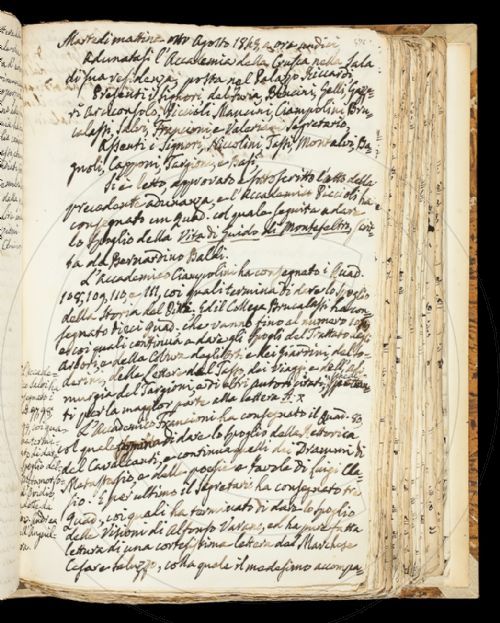 Martedì mattina otto Agosto 1848, a ore undici
Adunatasi l'Accademia della Crusca nella Sala
di sua residenza, posta nel Palazzo Riccardi
Presenti i Signori del Furia, Bencini, Gelli, Gazze-
ri Arciconsolo, Piccioli, Mancini, Ciampolini, Bru-
calassi, Salvi, Francioni e Valeriani Segretario,
Assenti i Signori, Niccolini, Tassi, Montalvi, Ba-
gnoli, Capponi, Targioni, e Basi.
Si è letto, approvato e sottoscritto l'atto della
precedente adunanza, e l'Accademico Piccioli ha
consegnato un Quad. col quale seguita a dare
lo spoglio della Vita di Guido di Montefeltro, scrit-
ta da Bernardino Baldi.
L'Accademico Ciampolini ha consegnato i Quad.
108, 109, 110, e 111, coi quali termina di dare lo spoglio
della Storia del Pitti. Ed il Collega Brucalassi ha con-
segnato dieci Quad. che vanno fino al numero
e coi quali continua a dare gli spogli del Trattato degli
Arbori, e della Coltura degli Orti e dei Giardini, del So-
derini, delle lettere del Tasso, dei Viaggi, e dell'Al-
murgia del Targioni, e di altri autori citati, spettan-
ti per la maggior parte alla lettera A. x
L'Accademico Francioni ha consegnato il Quad. 50,
col quale termina di dare lo spoglio della Rettorica
del Cavalcanti, e continua quelli dei Drammi di
Metastasio, e delle poesie e favole di Luigi Cla-
sio. E per ultimo il Segretario ha consegnato tre
Quad. coi quali ha terminato di dare lo spoglio
delle Visioni di Alfonso Varano, ed ha pure fatta
lettura di una cortesissima lettera del Marchese
Cesare Saluzzo, colla quale il medesimo accompa-